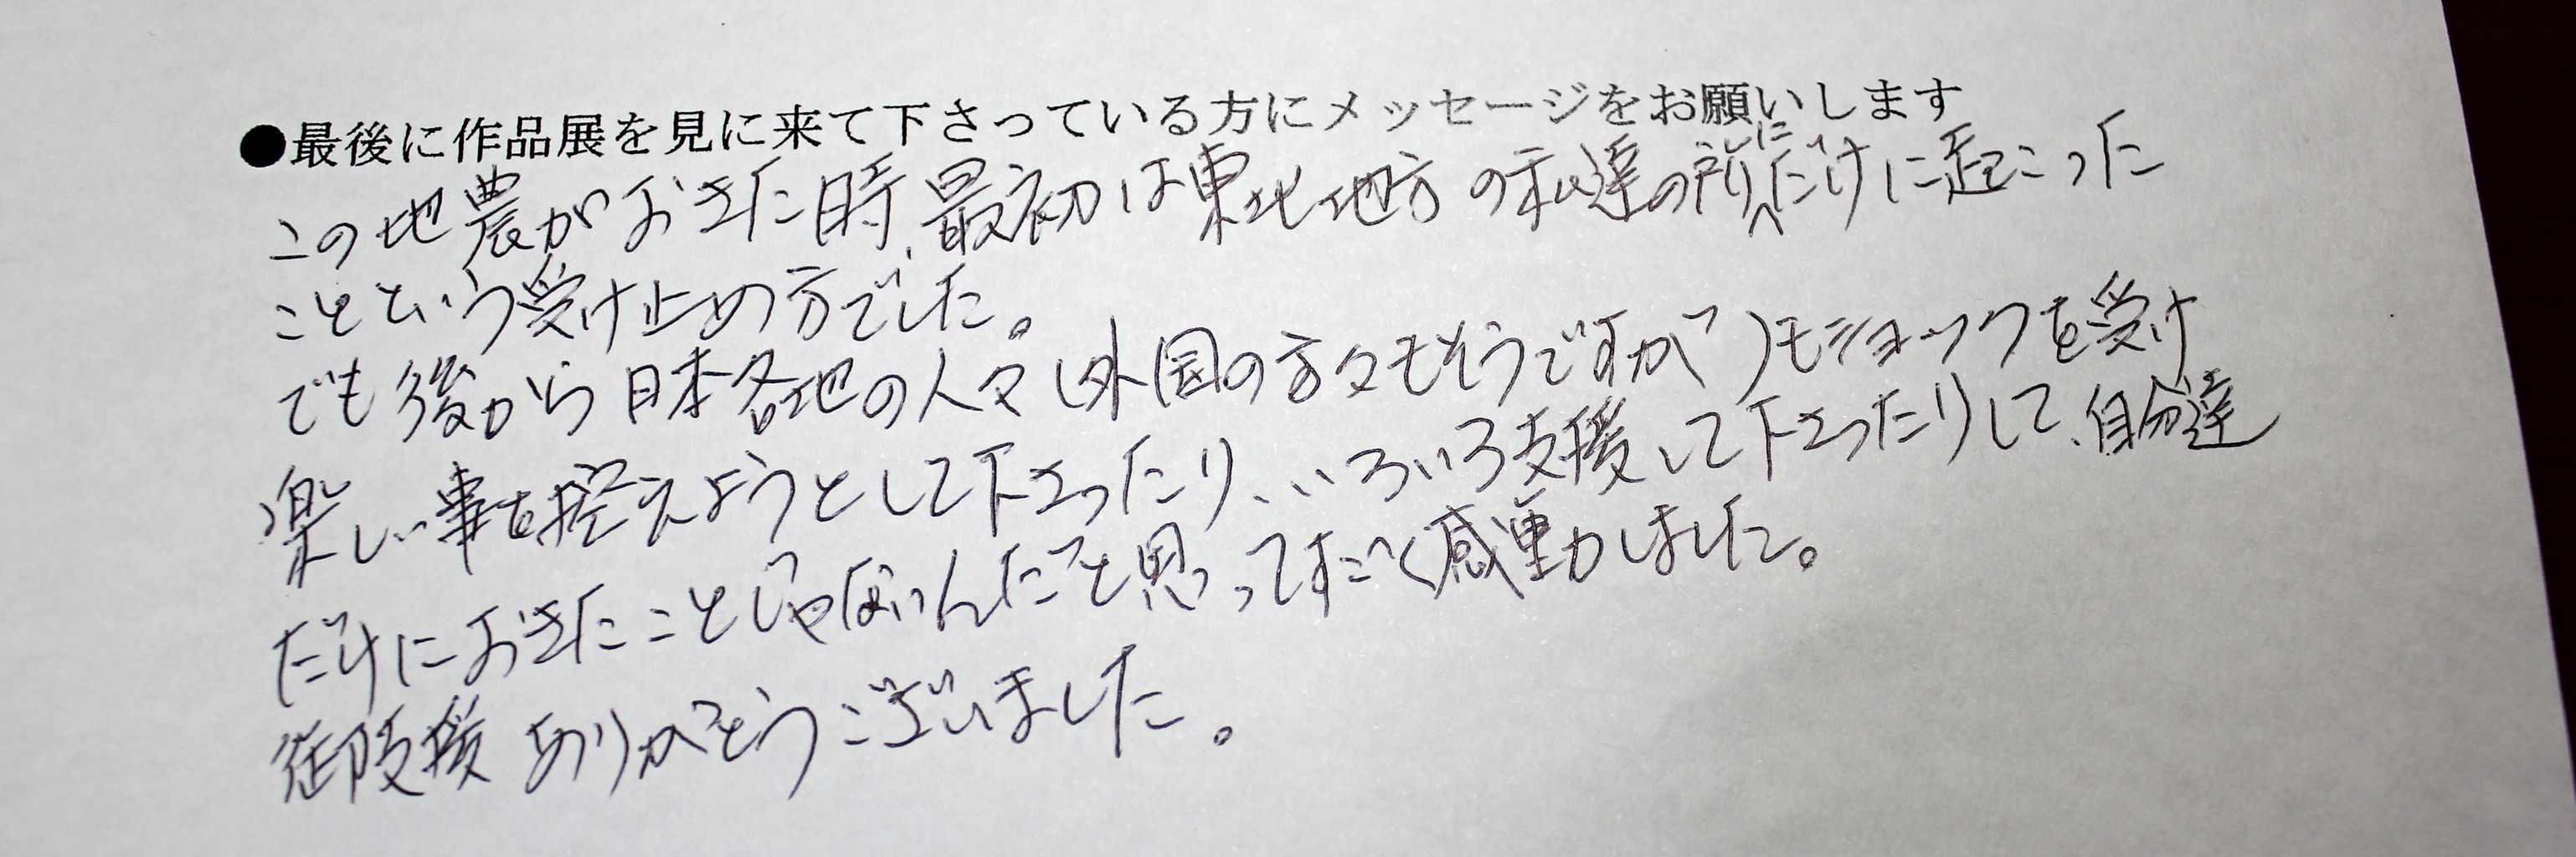 ●最後に作品展を見に来て下さっている方にメッセージをお願いします
この地農がおきた時、最初は東北地方の私達の所にだけに起こった
ことという受け止め方でした。
でも後から日本各地の人々(外国の方々もそうですが)もショックを受け
楽しい事を控えようとして下さったり、いろいろ支援して下さったりして、自分達
だけにおきたことじゃないんだと思ってすごく感動しました。
御支援ありがとうございました。